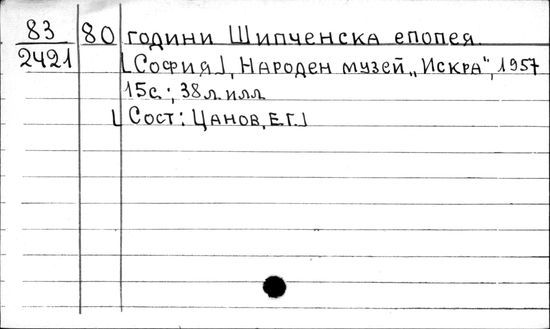 83 80 години Шипченска епопея.
2421 [София], Народен музей „Искра", 1957
15с.; 38л.илл.
[Сост: Цанов, Е.Г.]